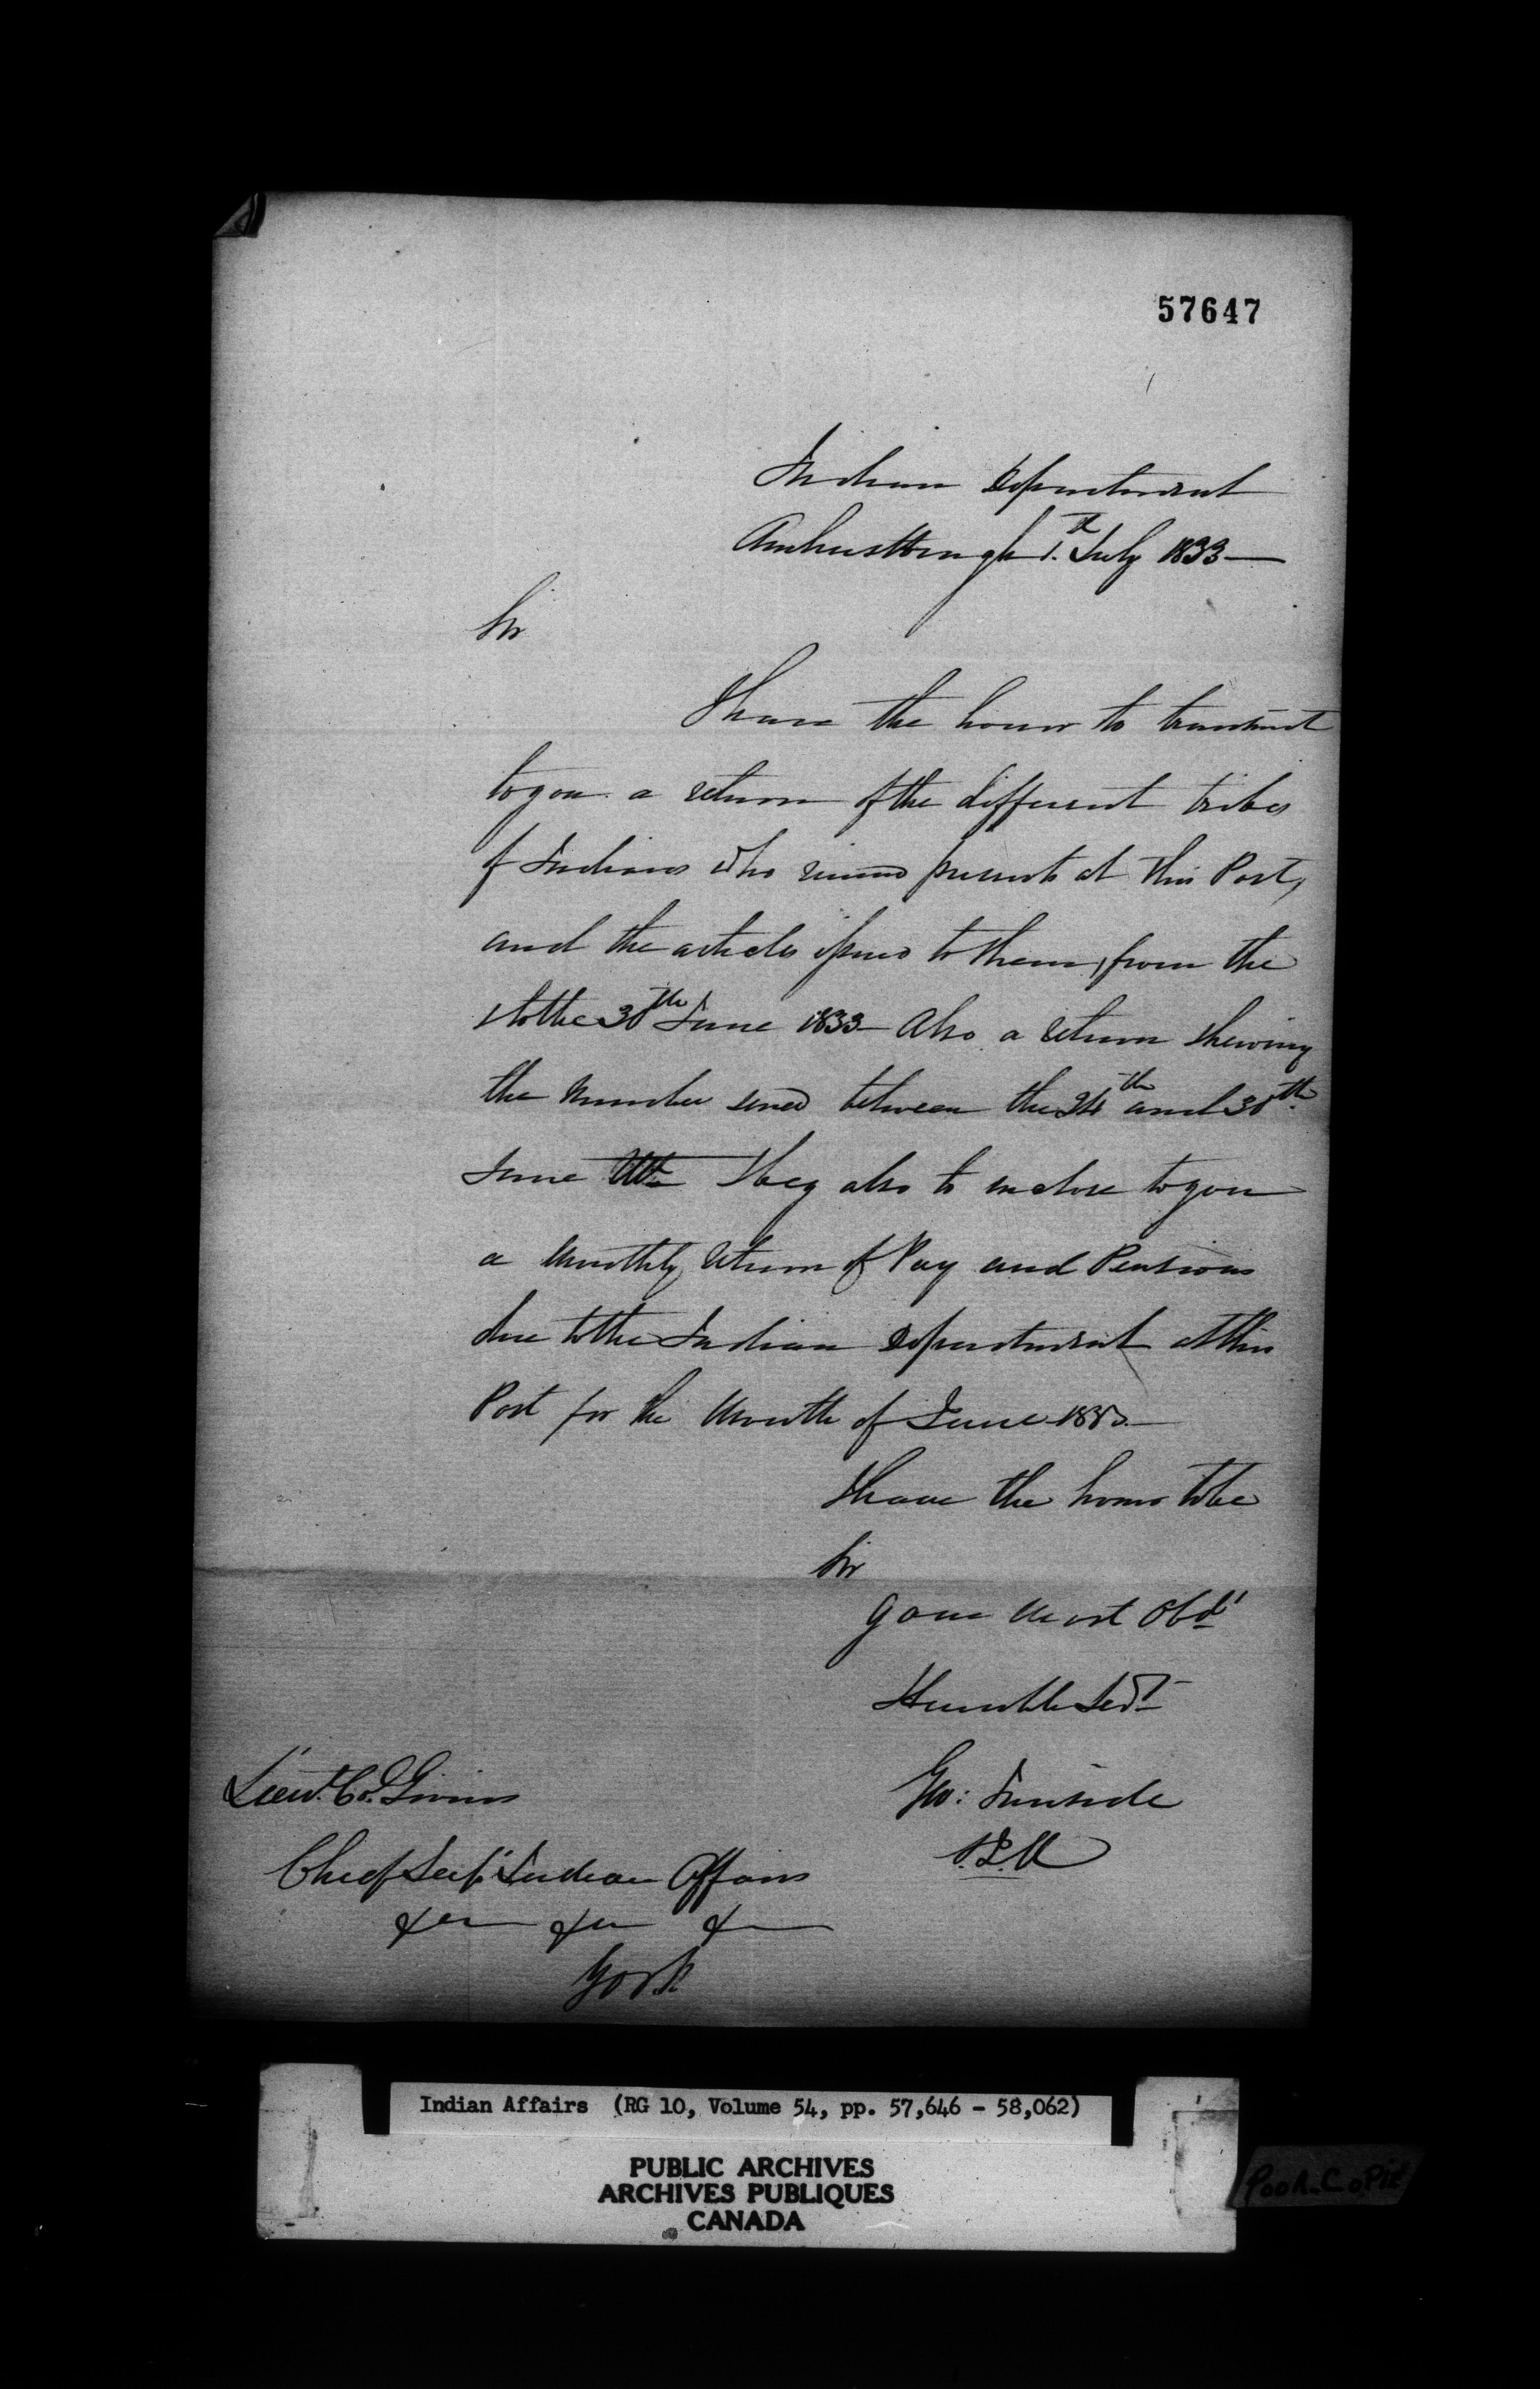 57647
Indian Department
Amherstburgh 1.st July 1833—
Sir
I have the honor to transmit
to you a return of the different tribes
of Indians who received presents at this Post,
and the articles issued to them, from the
1 to the 30th June 1833— Also a return shewing
the number served between the 24th and 30th
June I beg also to inclose to you
a Monthly return of Pay and Pensions
due to the Indian Department at this
Post for the Month of June 1833.—
I have the honor to be
Sir
Your Most Obdt
Humble Servt
Geo: Ironside
S.I.A
Lieut. Col. Givins
Chief Supt Indian Affairs
&c &c &c
York
Indian Affairs (RG 10, Volume 54, pp. 57,646 - 58,062)
PUBLIC ARCHIVES
ARCHIVES PUBLIQUES
CANADA
POOR COPIE